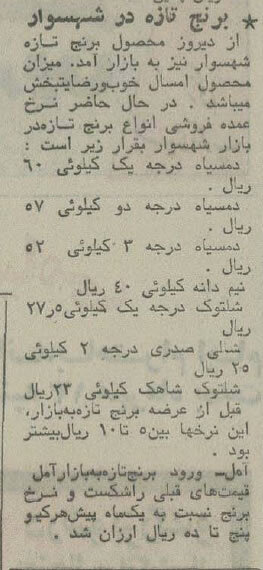 ★ برنج تازه در شهسوار
از دیروز محصول برنج تازه
شهسوار نیز به بازار آمد. میزان
محصول امسال خوب‌ورضایتبخش
میباشد . در حال حاضر نرخ
عمده فروشی انواع برنج تازه‌در
بازار شهسوار بقرار زیر است :
دمسیاه درجه یک کیلوئی ۶۰
ریال .
دمسیاه درجه دو کیلوئی ۵۷
ریال .
دمسیاه درجه ۳ کیلوئی ۵۲
ریال .
نیم دانه کیلوئی ۴۰ ریال
شلتوک درجه یک کیلوئی۲۷ر۵
ریال
شالی صدری درجه ۲ کیلوئی
۲۵ ریال
شلتوک شاهک کیلوئی ۲۳ریال
قبل از عرضه برنج تازه‌ببازار،
این نرخها بین۵ تا۱۰ ریال‌بیشتر
بود .
آمل– ورود برنج‌تازه‌به‌بازارآمل
قیمت‌های قبلی راشکست و نرخ
برنج نسبت به یک‌ماه پیش‌هرکیلو
پنج تا ده ریال ارزان شد .